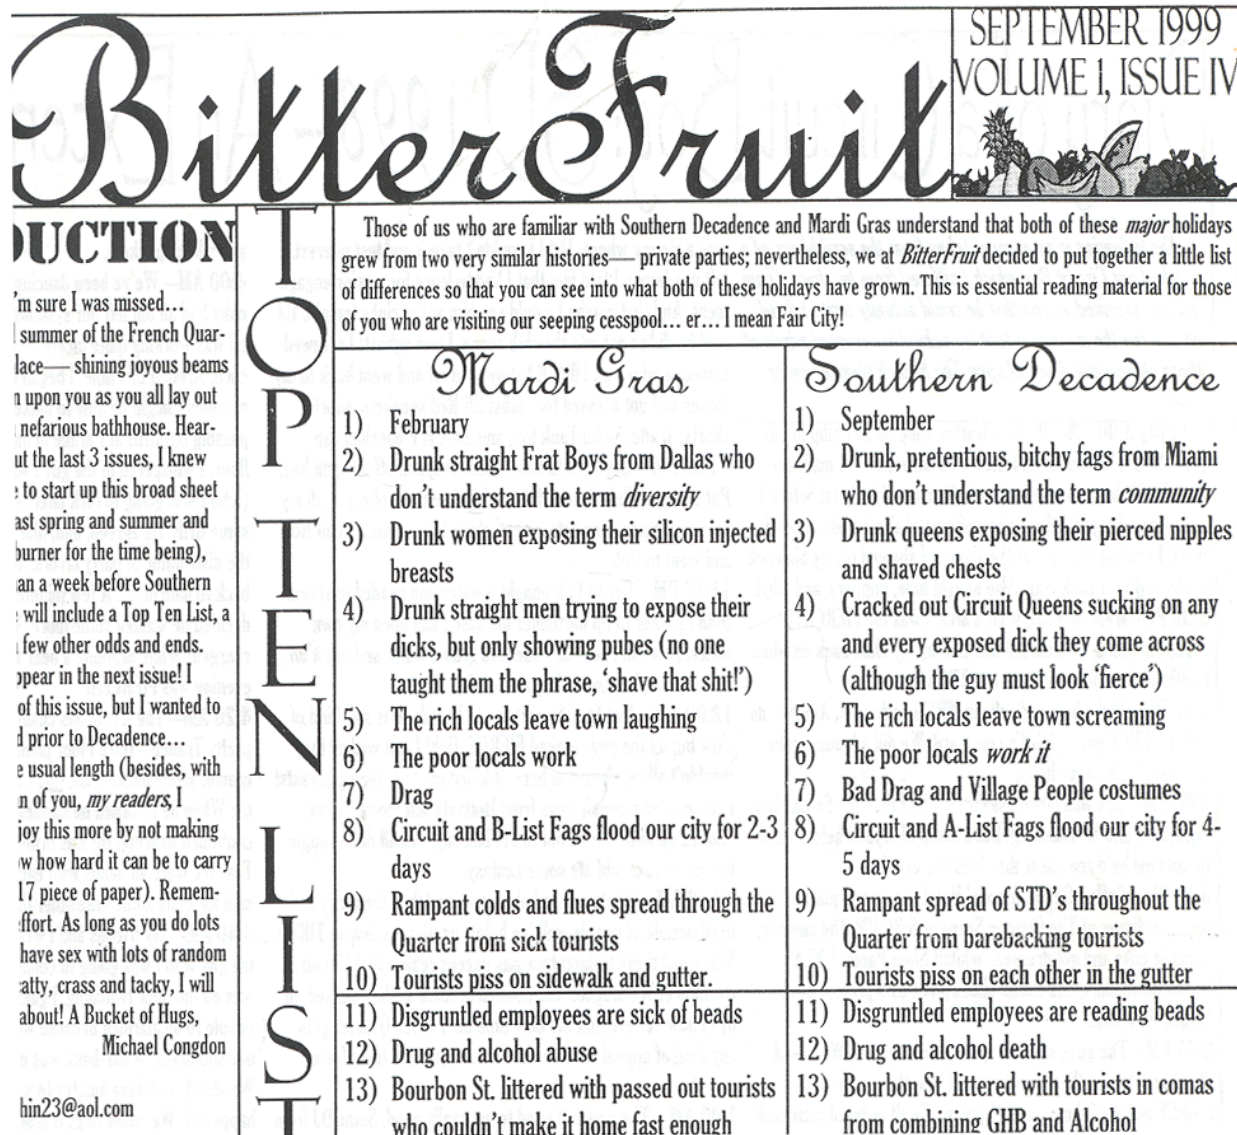 BitterFruit
SEPTEMBER 1999
VOLUME 1, ISSUE IV
DUCTION
'm sure I was missed…
summer of the French Quar-
lace— shining joyous beams
upon you as you all lay out
nefarious bathhouse. Hear-
ut the last 3 issues, I knew
to start up this broad sheet
ast spring and summer and
burner for the time being),
an a week before Southern
will include a Top Ten List, a
few other odds and ends.
ppear in the next issue! I
of this issue, but I wanted to
d prior to Decadence…
e usual length (besides, with
n of you, my readers, I
joy this more by not making
w how hard it can be to carry
17 piece of paper). Remem-
ffort. As long as you do lots
have sex with lots of random
atty, crass and tacky, I will
about! A Bucket of Hugs,
Michael Congdon
hin23@aol.com
TOP TEN LIST
Those of us who are familiar with Southern Decadence and Mardi Gras understand that both of these major holidays
grew from two very similar histories— private parties; nevertheless, we at BitterFruit decided to put together a little list
of differences so that you can see into what both of these holidays have grown. This is essential reading material for those
of you who are visiting our seeping cesspool… er… I mean Fair City!
Mardi Gras
1) February
2) Drunk straight Frat Boys from Dallas who
don't understand the term diversity
3) Drunk women exposing their silicon injected
breasts
4) Drunk straight men trying to expose their
dicks, but only showing pubes (no one
taught them the phrase, 'shave that shit!')
5) The rich locals leave town laughing
6) The poor locals work
7) Drag
8) Circuit and B-List Fags flood our city for 2-3
days
9) Rampant colds and flues spread through the
Quarter from sick tourists
10) Tourists piss on sidewalk and gutter.
11) Disgruntled employees are sick of beads
12) Drug and alcohol abuse
13) Bourbon St. littered with passed out tourists
who couldn't make it home fast enough
Southern Decadence
1) September
2) Drunk, pretentious, bitchy fags from Miami
who don't understand the term community
3) Drunk queens exposing their pierced nipples
and shaved chests
4) Cracked out Circuit Queens sucking on any
and every exposed dick they come across
(although the guy must look 'fierce')
5) The rich locals leave town screaming
6) The poor locals work it
7) Bad Drag and Village People costumes
8) Circuit and A-List Fags flood our city for 4-
5 days
9) Rampant spread of STD's throughout the
Quarter from barebacking tourists
10) Tourists piss on each other in the gutter
11) Disgruntled employees are reading beads
12) Drug and alcohol death
13) Bourbon St. littered with tourists in comas
from combining GHB and Alcohol